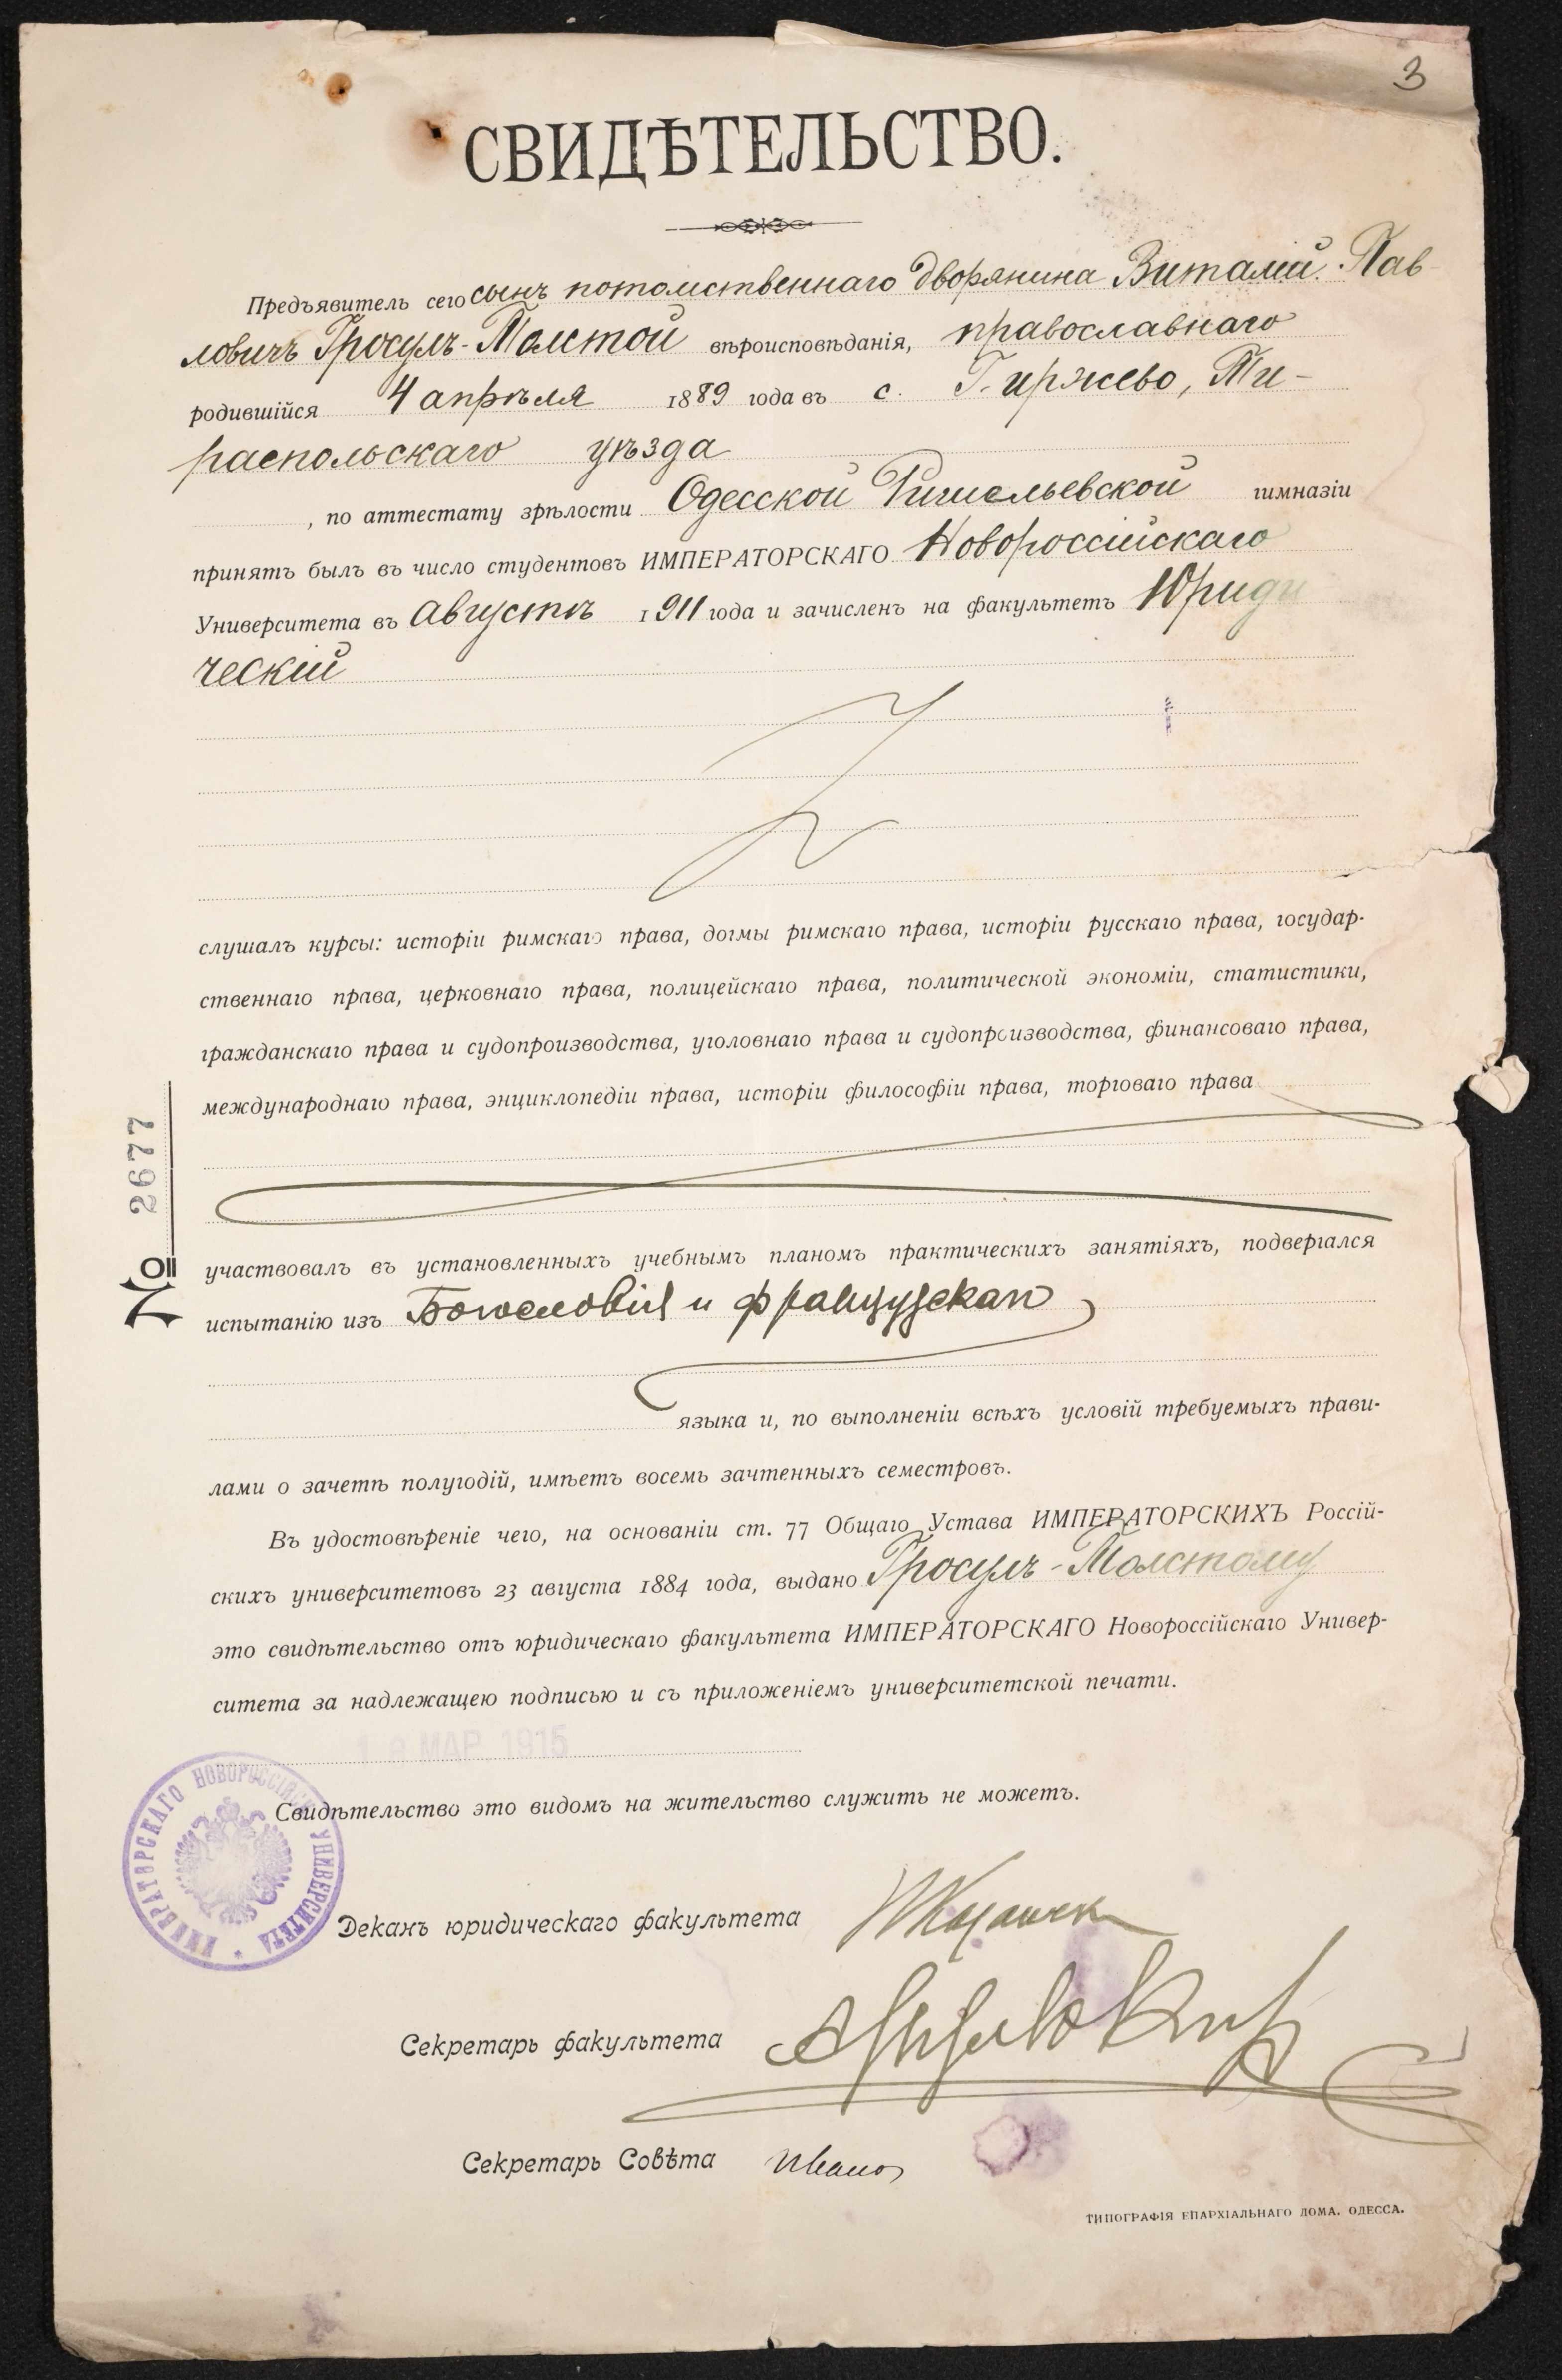 3
СВИДѢТЕЛЬСТВО.
Предъявитель сего сынъ потомственнаго дворянина Виталій Пав-
ловичъ Гросулъ-Толстой вѣроисповѣданія, православнаго
родившійся 4 апрѣля 1889 года въ с. Гиржево, Ти-
распольскаго уѣзда
, по аттестату зрѣлости Одесской Ришельевской гимназіи
принятъ былъ въ число студентовъ ИМПЕРАТОРСКАГО Новороссійскаго
Университета въ августѣ 1911 года и зачисленъ на факультетъ Юриди
ческій
слушалъ курсы: исторіи римскаго права, догмы римскаго права, исторіи русскаго права, государ-
ственнаго права, церковнаго права, полицейскаго права, политической экономіи, статистики,
гражданскаго права и судопроизводства, уголовнаго права и судопроизводства, финансоваго права,
международнаго права, энциклопедіи права, исторіи философіи права, торговаго права
№ 2677
участвовалъ въ установленныхъ учебнымъ планомъ практическихъ занятіяхъ, подвергался
испытанію изъ Богословія и французскаго
языка и, по выполненіи всѣхъ условій требуемыхъ прави-
лами о зачетѣ полугодій, имѣетъ восемь зачтенныхъ семестровъ.
Въ удостовѣреніе чего, на основаніи ст. 77 Общаго Устава ИМПЕРАТОРСКИХЪ Россій-
скихъ университетовъ 23 августа 1884 года, выдано Гросулъ-Толстому
это свидѣтельство отъ юридическаго факультета ИМПЕРАТОРСКАГО Новороссійскаго Универ-
ситета за надлежащею подписью и съ приложеніемъ университетской печати.
МАР 1915
Свидѣтельство это видомъ на жительство служить не можетъ.
ИМПЕРАТОРСКАГО НОВОРОССІЙСК. УНИВЕРСИТЕТА
Деканъ юридическаго факультета
Секретарь факультета
Секретарь Совѣта
ТИПОГРАФІЯ ЕПАРХІАЛЬНАГО ДОМА. ОДЕССА.